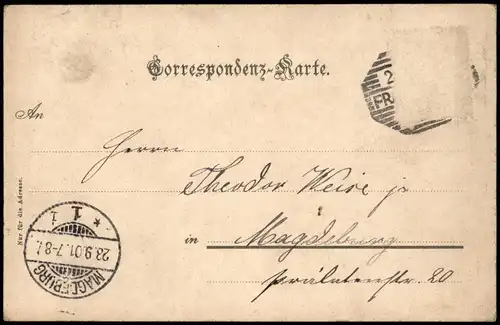 Correspondenz-Karte.
2
FR
An
Herrn
Theodor Weise jr
in Magdeburg
Prälatenstr. 20
Nur für die Adresse.
* 1 i
23.9.01.7-8
MAGDEBURG